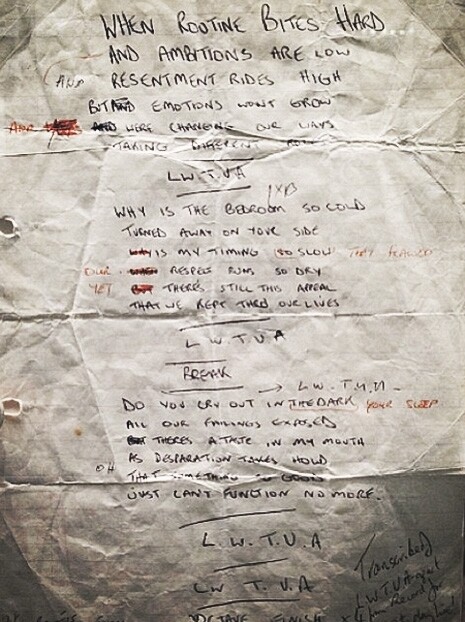 WHEN ROUTINE BITES HARD
AND AMBITIONS ARE LOW
AND RESENTMENT RIDES HIGH
BUT AND EMOTIONS WONT GROW
AND AND WERE CHANGING OUR WAYS
TAKING DIFFERENT
L.W.T.U.A
WHY IS THE BEDROOM SO COLD
TURNED AWAY ON YOUR SIDE
IS MY TIMING SO SLOW THAT FLAWED
OUR WHEN RESPECT RUNS SO DRY
YET BUT THERE'S STILL THIS APPEAL
THAT WE KEPT THRO OUR LIVES
L W T U A
BREAK
→ L.W.T.U.A.
DO YOU CRY OUT IN THE DARK YOUR SLEEP
ALL OUR FAILINGS EXPOSED
BUT THERES A TASTE IN MY MOUTH
AS DESPARATION TAKES HOLD
OH THAT SOMETHING SO GOOD
JUST CAN'T FUNCTION NO MORE.
L.W.T.U.A
LW T.U.A
Transcribed
L.W.T.U.A
Record